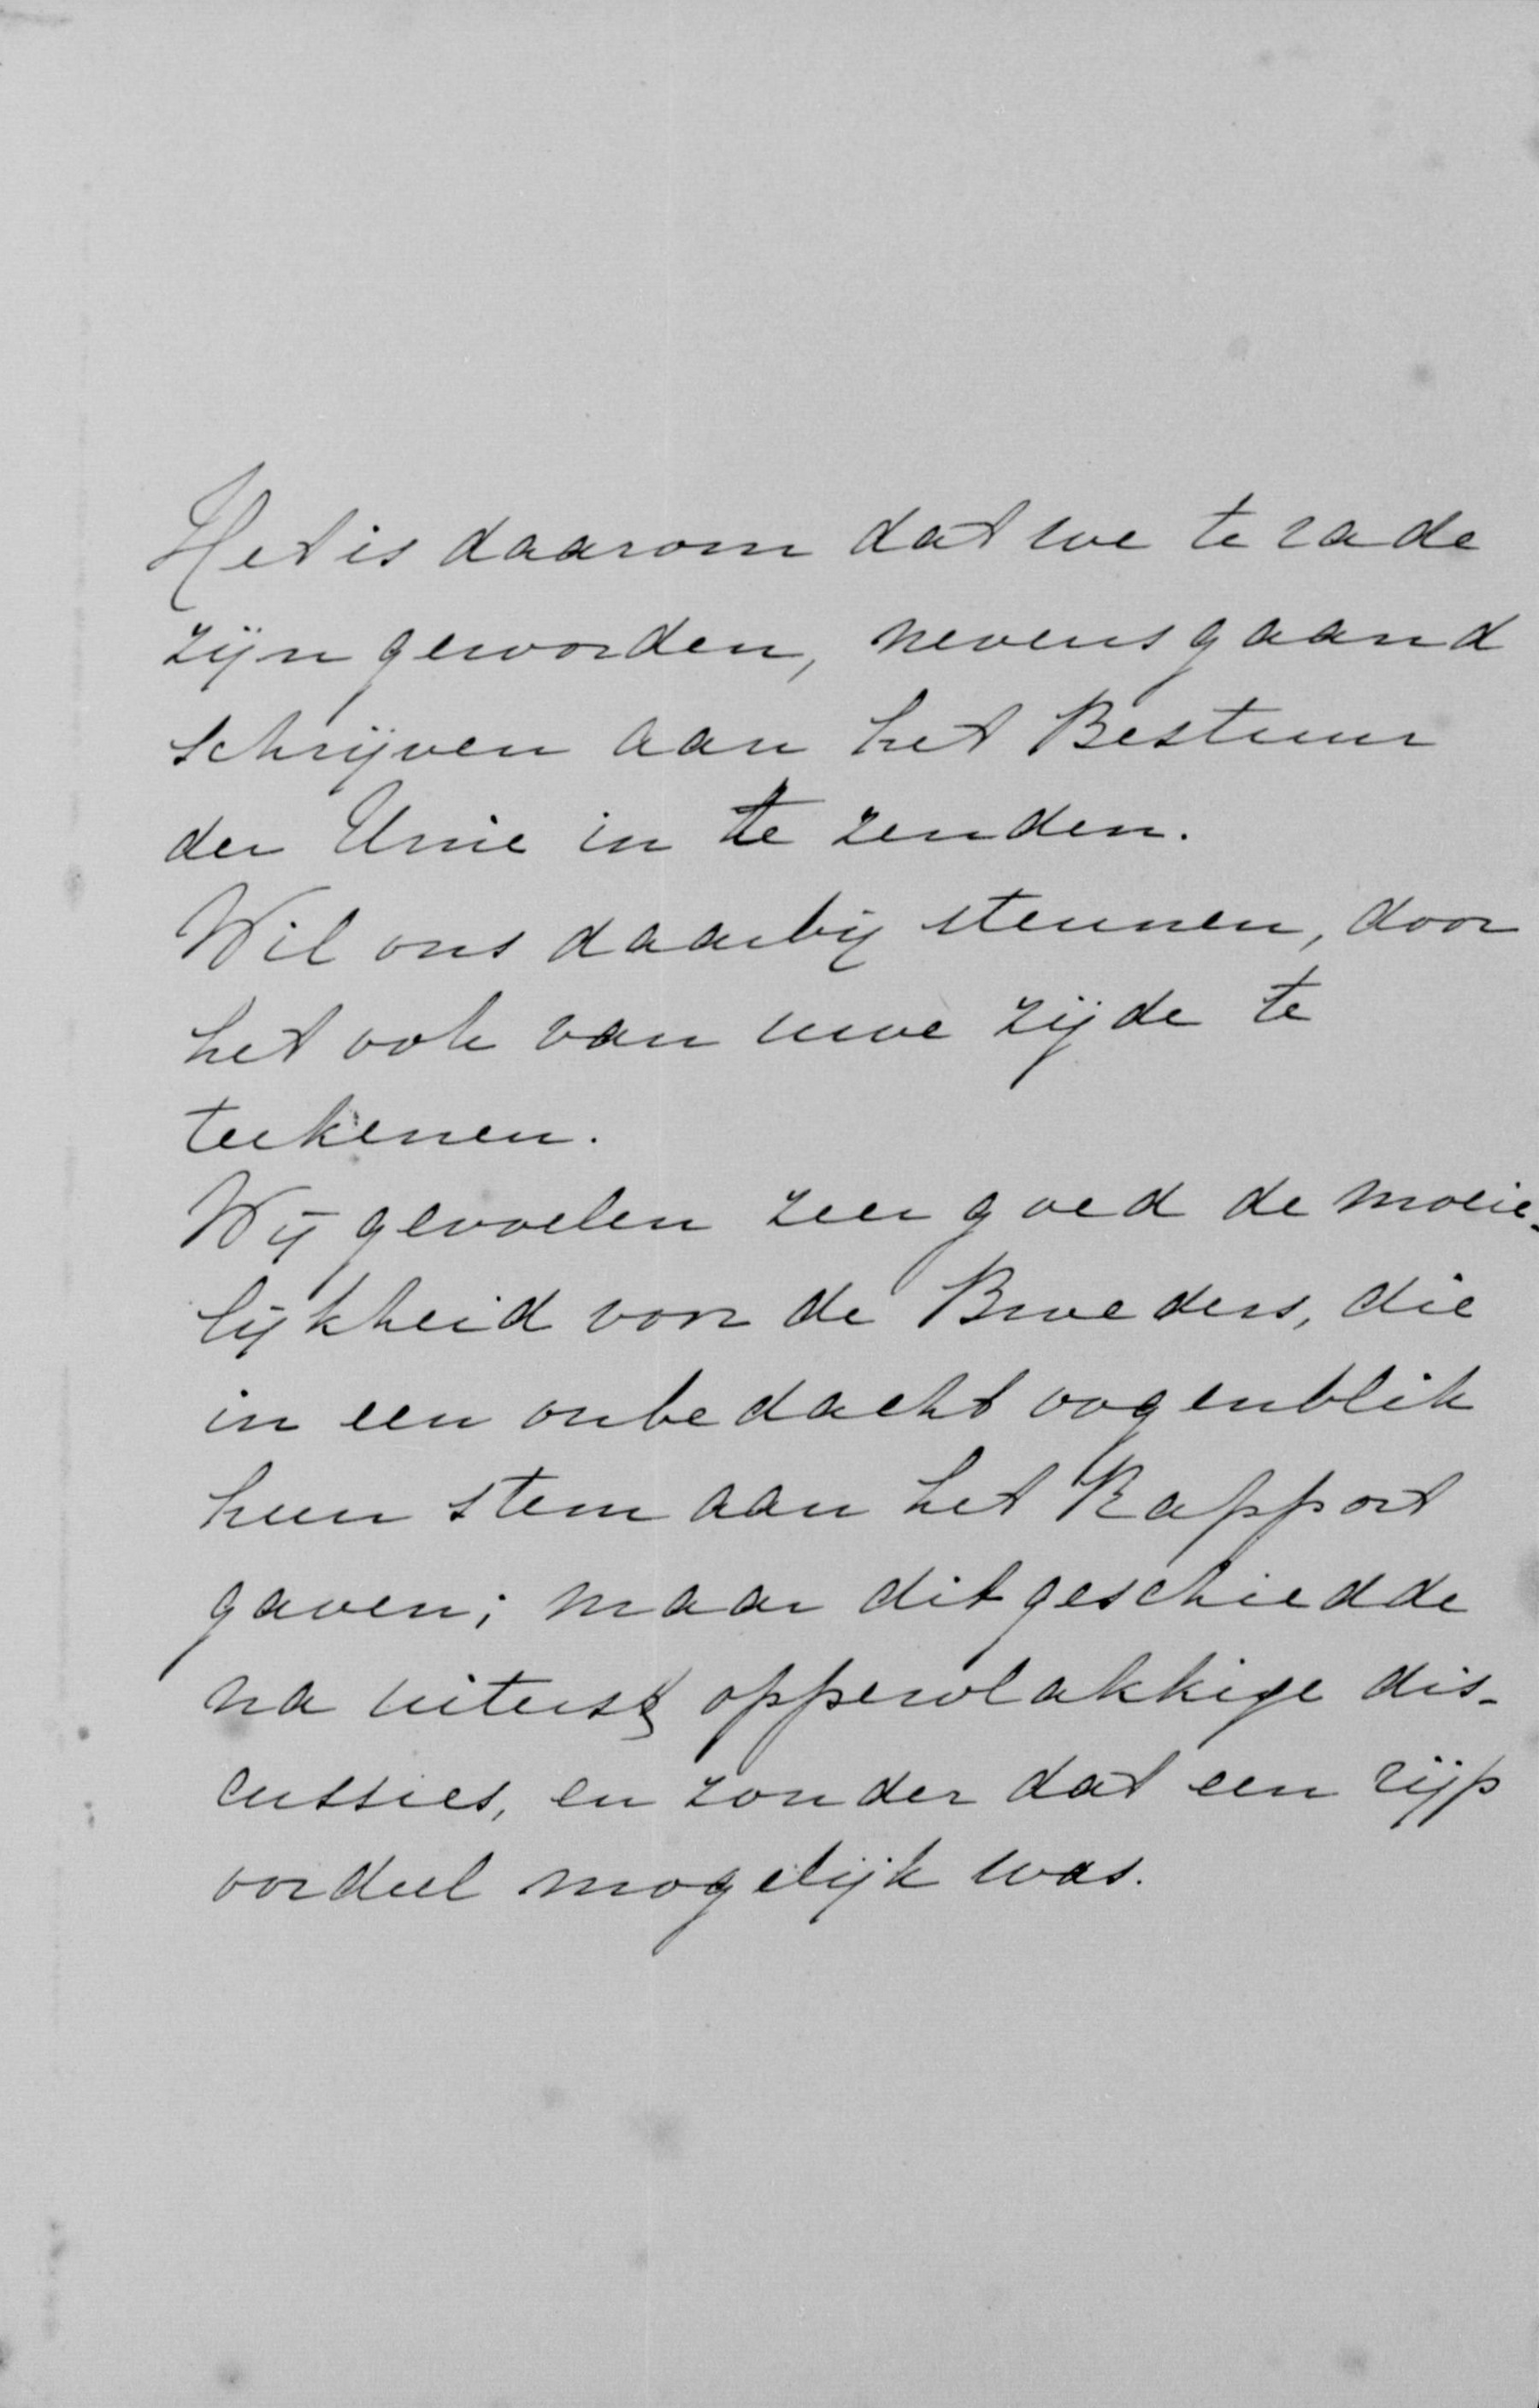 Het is daarom dat we te rade
zijn geworden, nevensgaand
schrijven aan het Bestuur
der Unie in te zenden.
Wil ons daarbij steunen, door
het ook van uwe zijde te
teekenen.
Wij gevoelen zeer goed de moeie-
lijkheid voor de Broeders, die
in een onbedacht oogenblik
hun stem aan het Rapport
gaven; maar dit geschiedde
na uiterst oppervlakkige dis-
cussies, en zonder dat een rijp
oordeel mogelijk was.